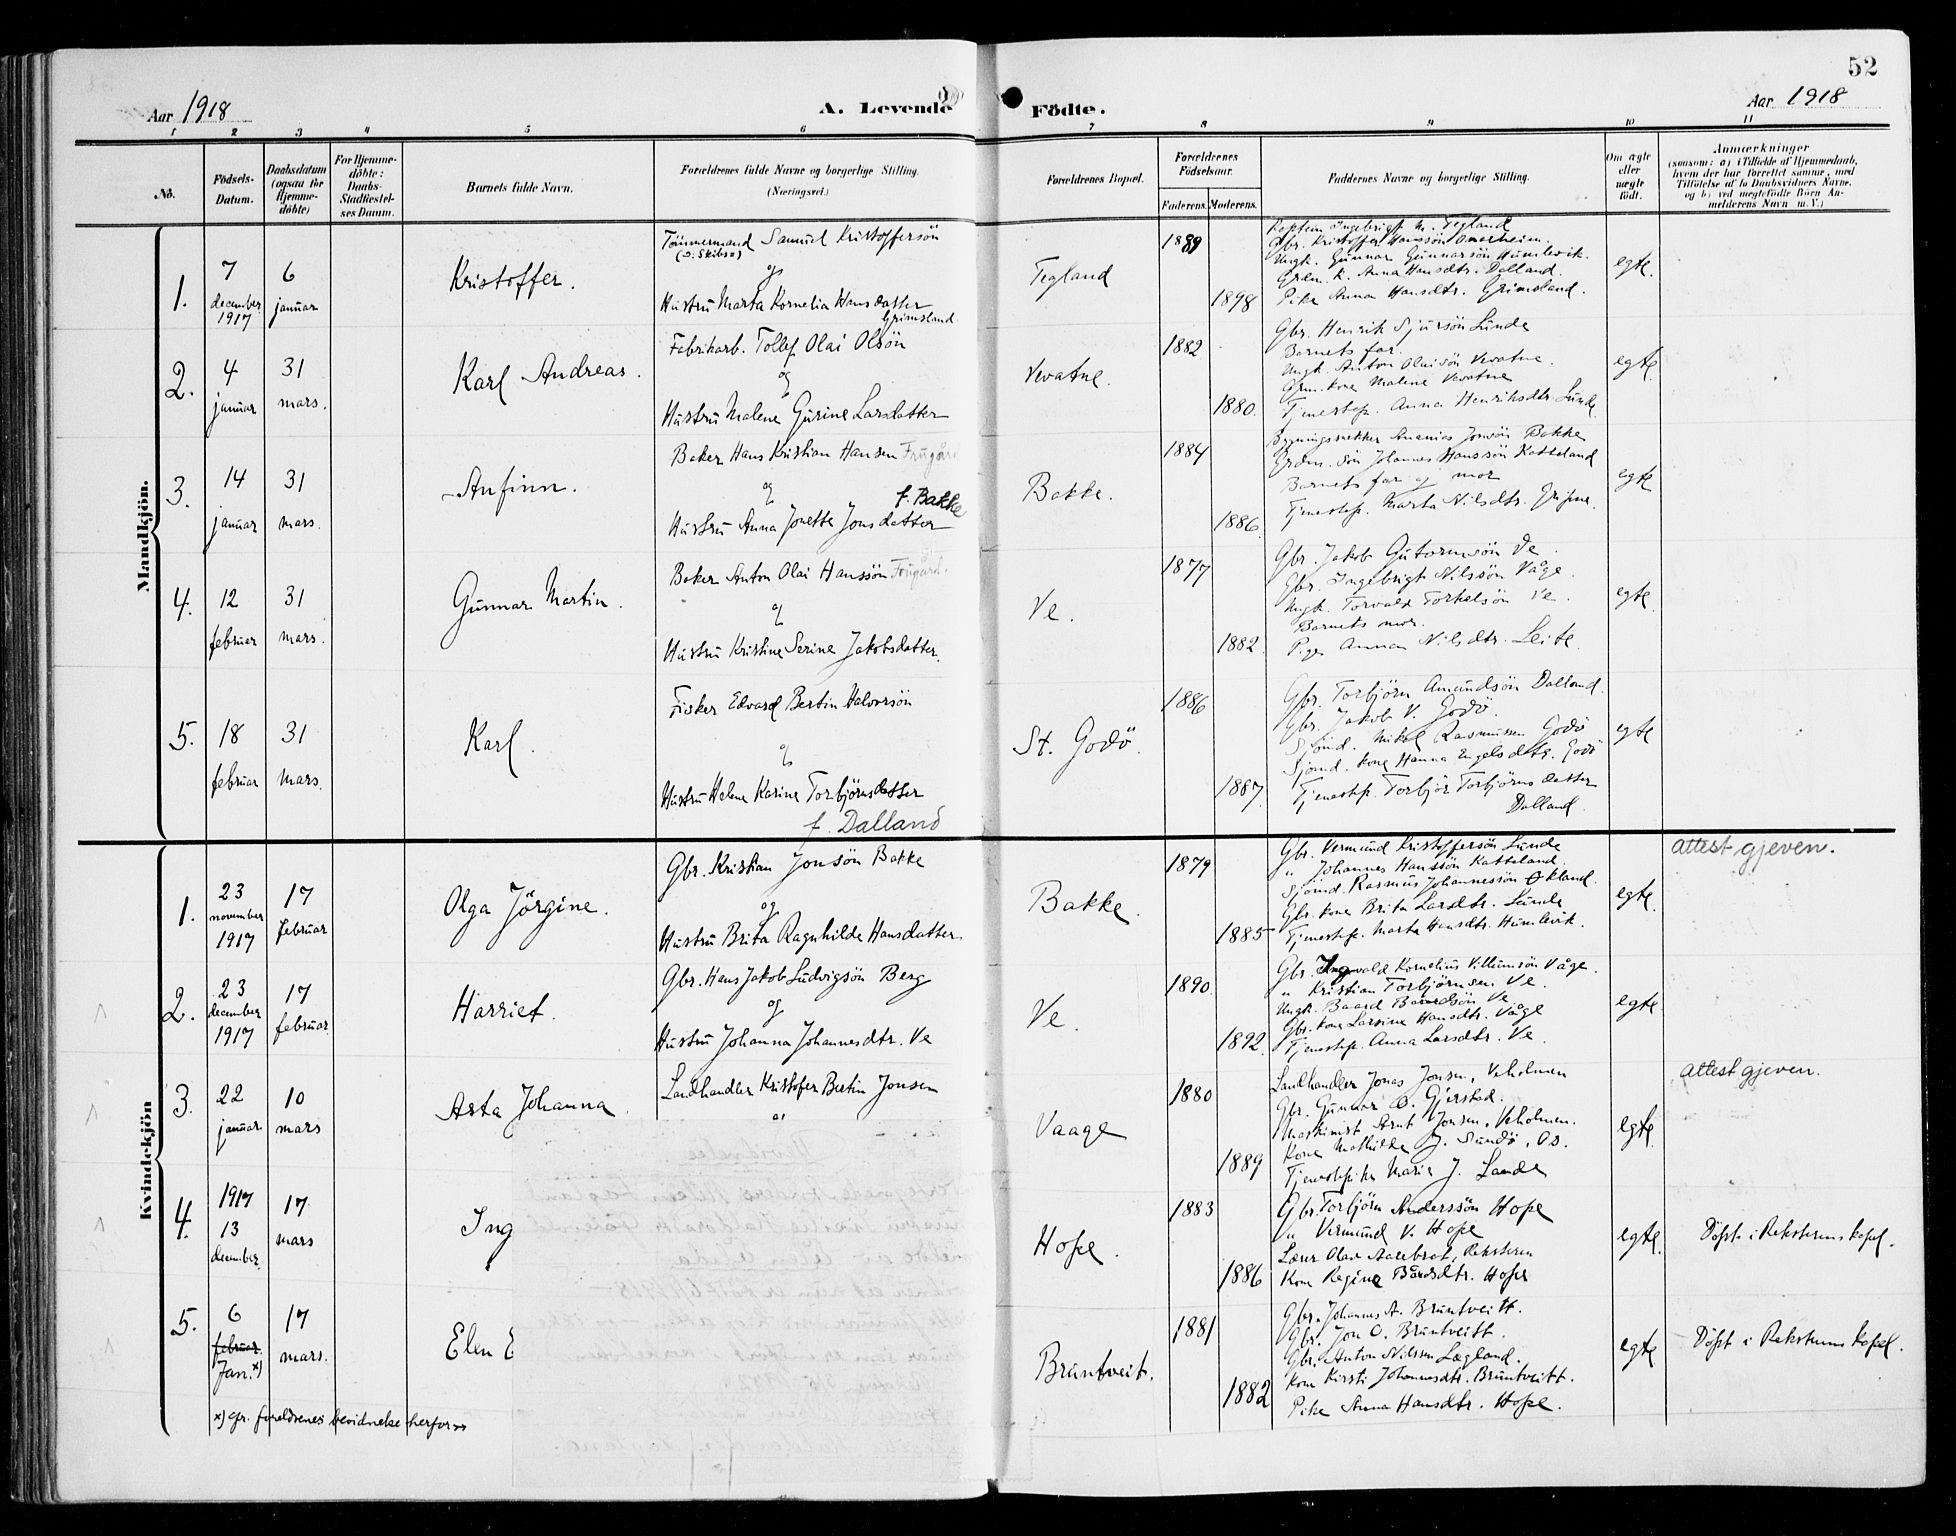 52
Aar 1918
A. Levende
Födte.
Aar 1918
1 2 3 4 5 6 7 8 9 10 11
No.
Födsels-
Datum.
Daabsdatum
(ogsaa for
Hjemme-
döbte)
For Hjemme-
döbte:
Daabs-
Stadfæstel-
ses Datum.
Barnets fulde Navn.
Forældrenes fulde Navne og borgerlige Stilling.
(Næringsvei.)
Forældrenes Bopæl.
Forældrenes
Födselsaar.
Faderens.
Moderens.
Faddernes Navne og borgerlige Stilling.
Om ægte
eller
uægte
født.
Anmærkninger
(saasom: a) i Tilfælde af Hjemmedaab,
hvem der har forrettet samme, med
Tilföielse af to Daabsvidners Navne,
og b) ved uegtefödte Börn An-
melderens Navn m. V.)
Mandkjön.
1.
7
december
1917
6
januar
Kristoffer.
Tömmermand Samuel Kristoffersön
og
Hustru Marta Kornelia Hansdatter
Grimsland.
Tegland
1889
1898
Ingebrigt M. Tegland
Gbr. Kristoffer Hanssön Onarheim.
Ungk. Gunnar Gunnarsön Humlevik.
Grdm. k. Anna Hansdtr. Dalland.
Pike Anna Hansdtr. Grimsland.
egte.
2.
4
januar
31
mars.
Karl Andreas.
Fabrikarb. Tollef Olai Olsön
og
Hustru Malene Gurine Larsdatter
Vevatne.
1882
1880.
Gbr. Henrik Sjursön Lunde
Barnets far.
Ungk. Anton Olaisön Vevatne.
Grm. kone Malene Vevatne
Tjenestep. Anna Henriksdtr. Lunde
egte.
3.
14
januar
31
mars.
Anfinn.
Baker Hans Kristian Hansen Frugård
og
f. Bakke
Hustru Anna Jonette Jonsdatter
Bakke.
1884
1886.
Ananias Jonsön Bakke
Grdm. sön Johannes Hanssön Katteland
Barnets far og mor
Tjenestep. Marta Nilsdtr.
egte
4.
12
februar
31
mars.
Gunnar Martin.
Baker Anton Olai Hanssön Frugård.
og
Hustru Kristine Serine Jakobsdatter.
Ve.
1877
1882.
Gbr. Jakob Gutormsön Ve.
Gbr. Ingebrigt Nilssön Våge.
Ungk. Torvald Torkelsön Ve.
Barnets mor.
Pige Anna Nilsdtr. Leite.
egte.
5.
18
februar
31
mars.
Karl.
Fisker Edvard Bertin Halvorsön
og
Hustru Helene Karine Torbjörnsdatter
f. Dalland
St. Godö.
1886
1887.
Gbr. Torbjörn Amundsön Dalland.
Gbr. Jakob V. Godö.
Sjömd. Mikal Rasmussen Godö
Sjömd. kone Hanna Engelsdtr. Godö
Tjenestep. Torbjör Torbjörnsdatter
Dalland.
egte
Kvindekjön
1.
23
november
1917
17
februar
Olga Jörgine.
Gbr. Kristian Jonsön Bakke
og
Hustru Brita Ragnhilde Hansdatter.
Bakke.
1879
1885
Gbr. Vermund Kristoffersön Lunde
" Johannes Hanssön Katteland.
Sjömd. Rasmus Johannessön Økland.
Gbr. kone Brita Larsdtr. Lunde
Tjenestep. Marta Hansdtr. Humlevik.
egte.
attest gjeven.
2.
23
december
1917
17
februar.
Harriet.
Gbr. Hans Jakob Ludvigsön Berg
og
Hustru Johanna Johannesdtr. Ve
Ve.
1890.
1892.
Gbr. Ingvald Kornelius Villumsön Våge.
" Kristian Torbjörnsen Ve.
Ungk. Baard Baardsön Ve
Gbr. kone Larsine Hansdtr. Våge
Tjenestep. Anna Larsdtr. Ve.
egte
3.
22
januar
10
mars
Asta Johanna.
Landhandler Kristofer Bertin Jonsen
Vaage
1880
1889
Landhandler Jonas Jonsen, Veholmen
Gbr. Gunnar O. Gjerstad.
Maskinist Arnt Jonsen, Veholmen.
Kone Mathilde J. Sundö, Os.
Tjenestepike Marie J. Lande
egte.
attest gjeven.
4.
1917
13
december.
17
mars
Ing
Hope.
1883
1886
Gbr. Torbjörn Anderssön Hope
" Vermund V. Hope
Lærer Olav Aarebrot, Reksteren
Kone Regine Bårdsdtr. Hope
egte.
Döpt i Reksterens kapel.
5.
6
februar
Jan. x)
17
mars.
Elen E
Bruntveit.
1881
1882
Gbr. Johannes A. Bruntveitt.
Gbr. Jon O. Bruntveitt.
Gbr. Anton Nilssen Lægland.
Kone Kirsti Johannesdtr. Bruntveitt.
Pike Anna Hansdtr. Hope.
egte
Döpt i Reksterens kapel.
x) cfr. foreldrenes bevidnelse herfor